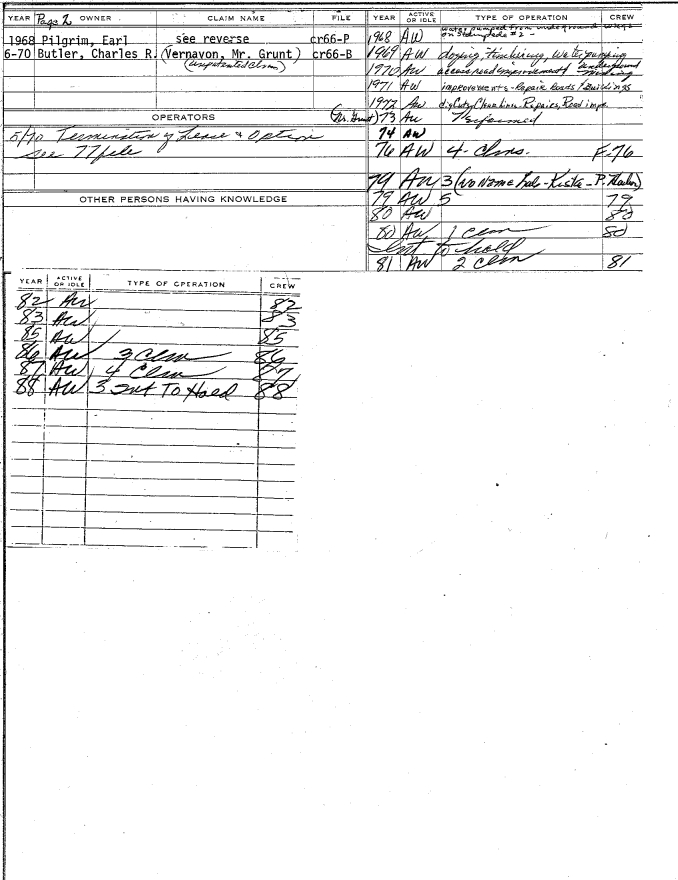 YEAR Page 2 OWNER CLAIM NAME FILE
1968 Pilgrim, Earl see reverse cr66-P
6-70 Butler, Charles R. (Vernavon, Mr. Grunt) cr66-B
(unpatented clms)
OPERATORS
5/70 Termination of Lease & Option
See 77 file
OTHER PERSONS HAVING KNOWLEDGE
YEAR ACTIVE OR IDLE TYPE OF OPERATION CREW
water pumped from underground
on Stampede #2 -
1968 AW
1969 AW dozing, timbering, Water pumping
1970 AW access road improvement underground mining
1971 AW improvements - Repair Roads & Buildings
1972 AW Repairs, Road imp.
(Mr. Grunt) 73 AW
74 AW
76 AW 4 - Clms. F-76
79 AW 3 (No Name
79 AW 5 79
80 AW 80
80 AW 1 clm 80
Int to hold
81 AW 2 clm 81
YEAR ACTIVE OR IDLE TYPE OF OPERATION CREW
82 AW 82
83 AW 83
85 AW 85
86 AW 3 Clm 86
87 AW 4 Clm 87
88 AW 3 Int To Hold 88